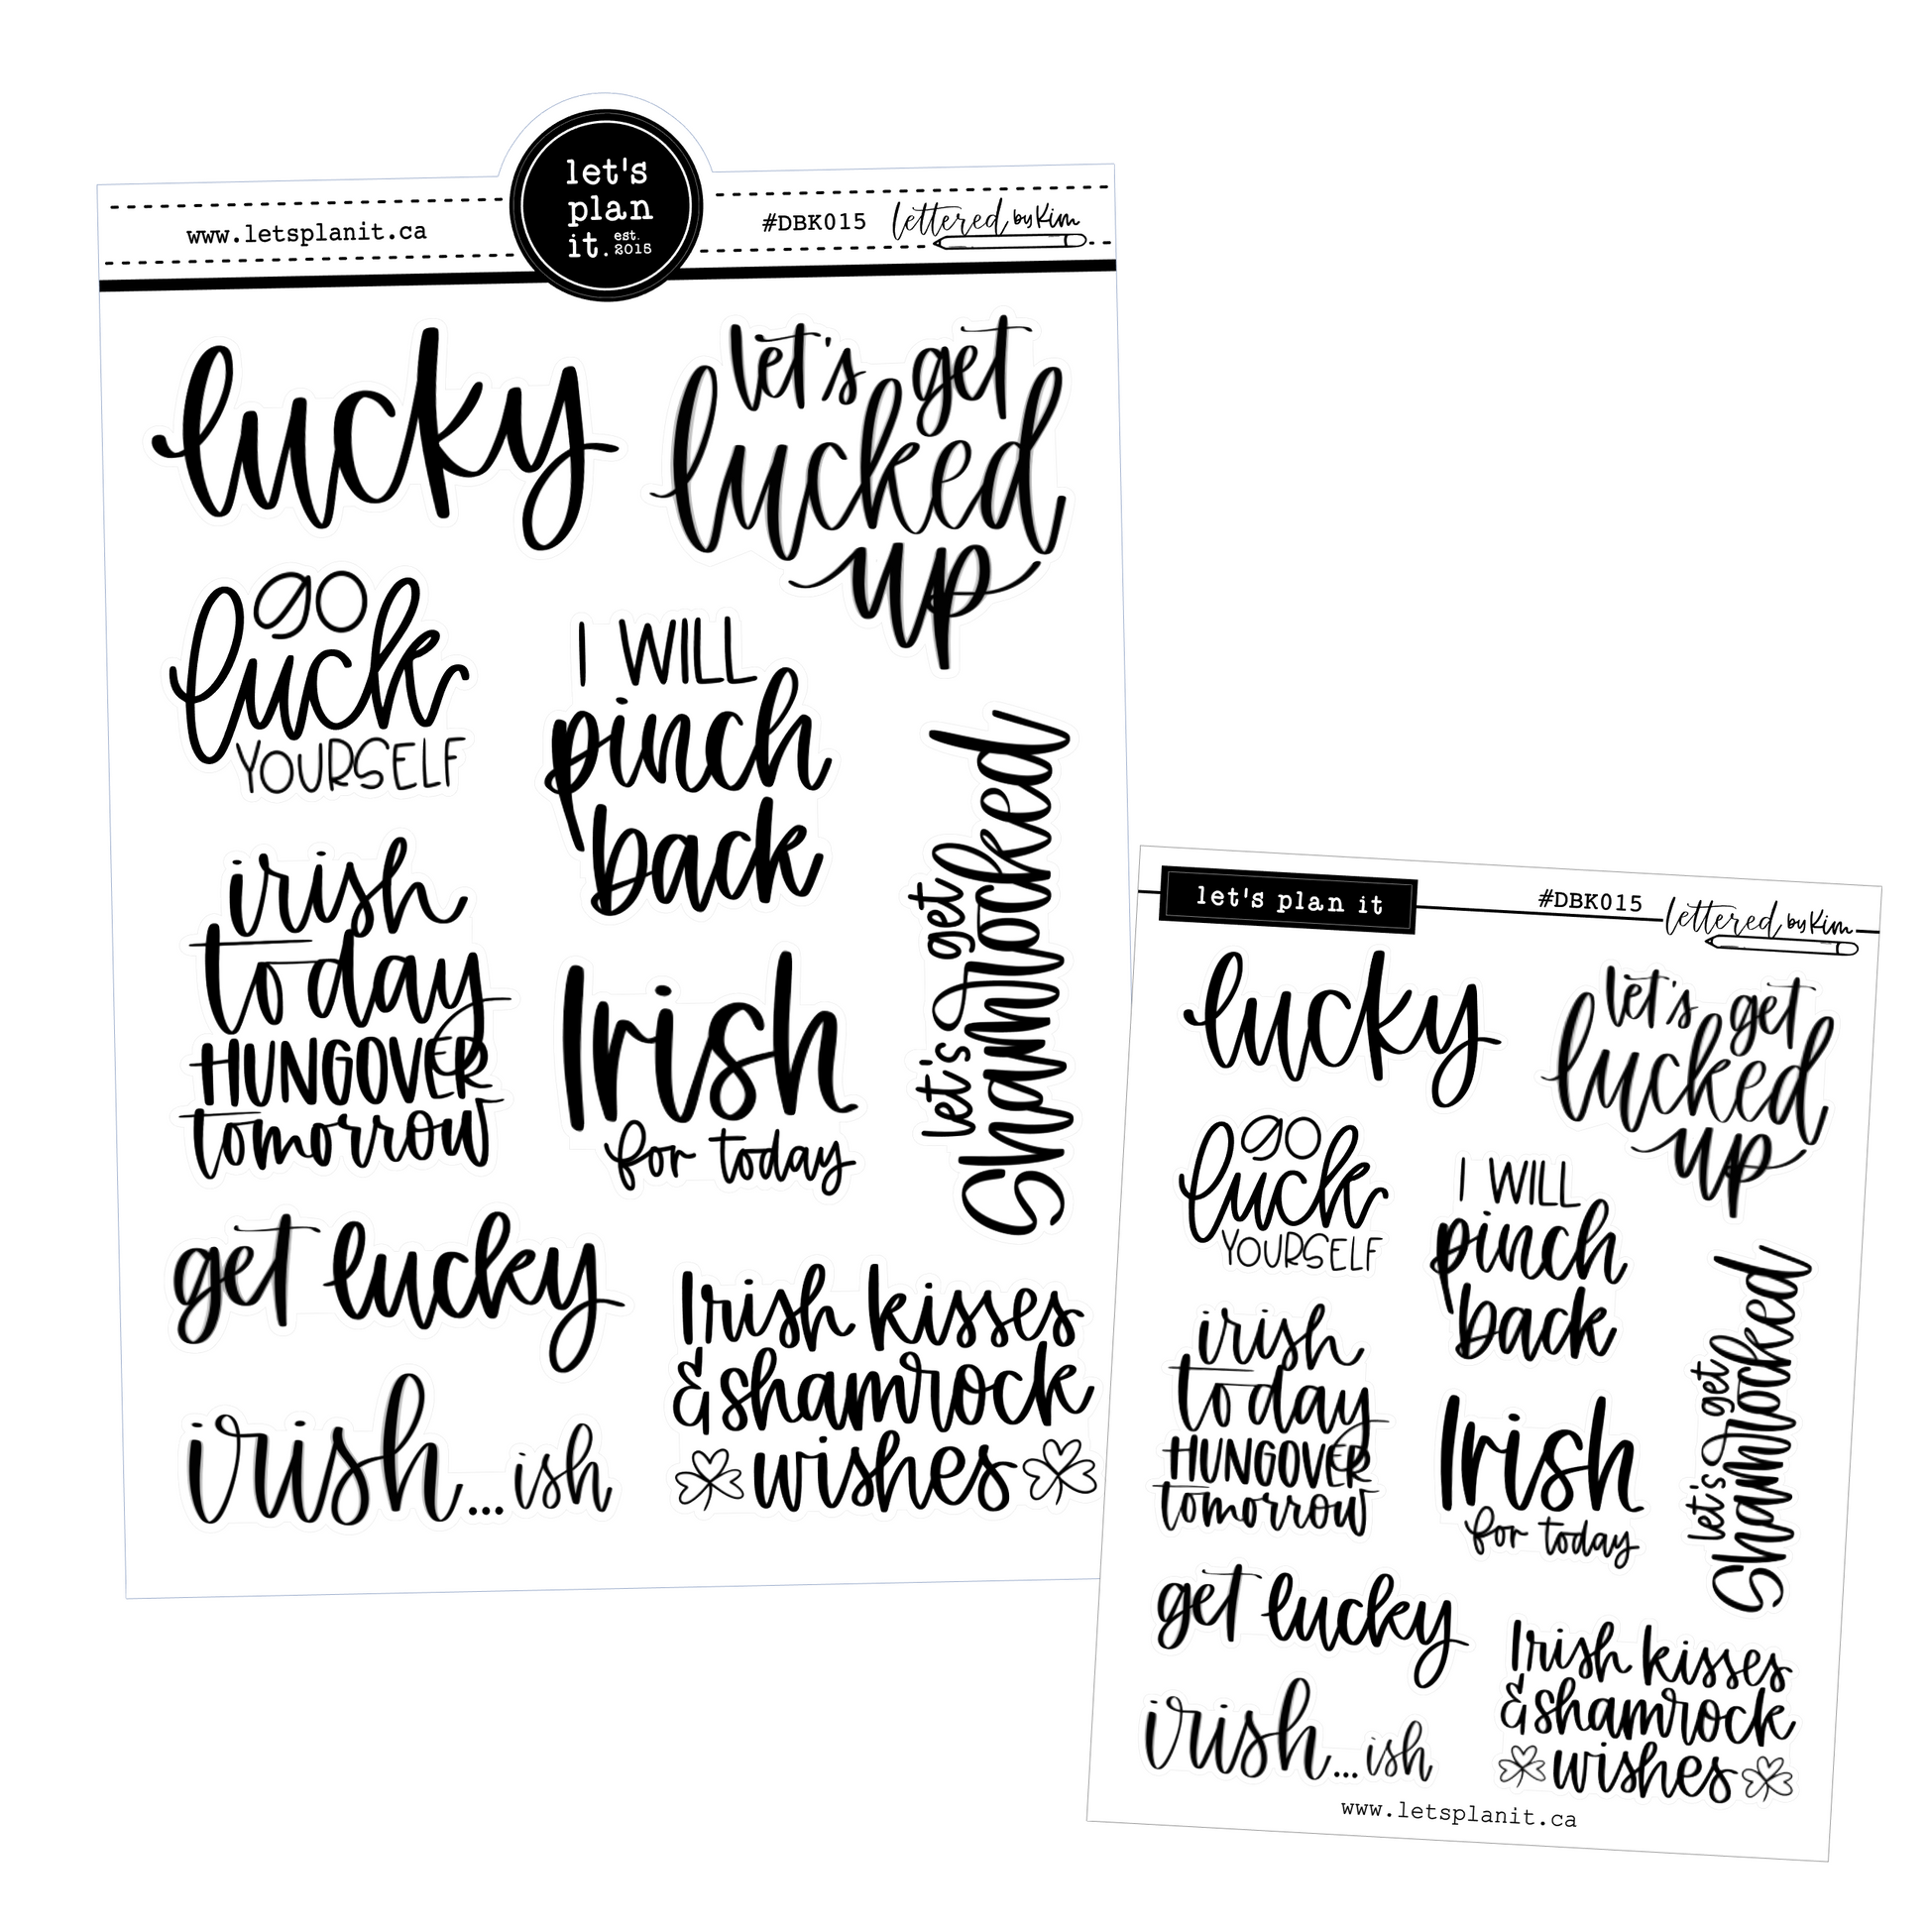 let's
plan
it. est.
2015
www.letsplanit.ca
#DBK015 lettered by Kim
lucky
let's get
lucked
up
go
luck
YOURSELF
I WILL
pinch
back
let's get
Shamrocked
irish
today
HUNGOVER
tomorrow
Irish
for today
get lucky
Irish kisses
& shamrock
wishes
irish...ish
let's plan it
#DBK015 lettered by Kim
lucky
let's get
lucked
up
go
luck
YOURSELF
I WILL
pinch
back
let's get
Shamrocked
irish
today
HUNGOVER
tomorrow
Irish
for today
get lucky
Irish kisses
& shamrock
wishes
irish...ish
www.letsplanit.ca